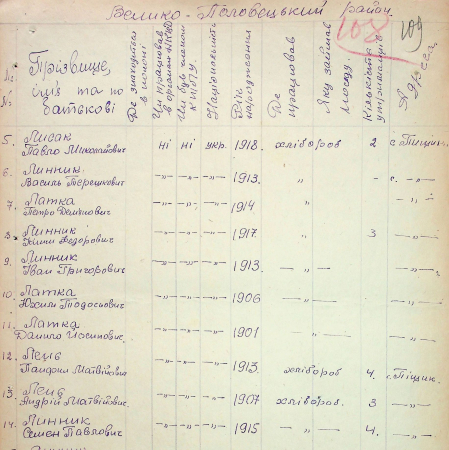 Велико-Половецький район
107 109
№№
Прізвище, ім'я та по батькові
Де знаходиться в полоні
Чи працював в органах НКВД
Чи був членом КП(б)У
Національність
Рік народження
Де працював
Яку займав посаду
Кількість утриманців
Адреса
5. Лисак Павло Миколайович ні ні укр. 1918. хлібороб 2 с. Піщик.
6. Линник Василь Терешкович -"- -"- -"- 1913. " - с. -"-
7. Латка Петро Дем'янович -"- -"- -"- 1914 " -"-
8. Линник Федорович -"- -"- -"- 1917. " 3 -"-
9. Линник Іван Григорович -"- -"- -"- 1913. -"- -"-
10. Латка Юхим Тодосьович -"- -"- -"- 1906 -"- -"-
11. Латка Данило Йосипович -"- -"- -"- 1901 -"- -"-
12. Лець Панфил Матвійович -"- -"- -"- 1913. хлібороб 4. с. Піщик.
13. Лець Андрій Матвійович. -"- -"- -"- 1907 хлібороб. 3 -"-
14. Линник Семен Павлович -"- -"- -"- 1915 -"- 4. -"-